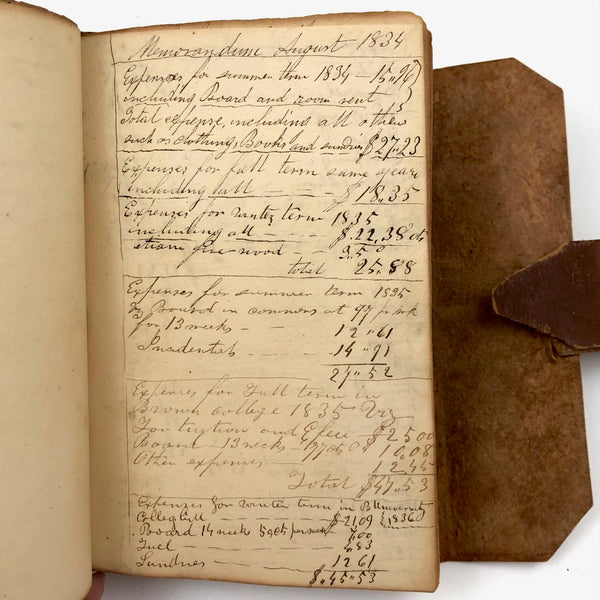 Memorandum August 1834
Expenses for summer term 1834 — 15,,26
including Board and room rent
Total expense, including all others
such as clothing, Books and sundries $27,,23
Expenses for fall term same year
including all — — — $18,,35
Expenses for winter term 1835
including all — — — $.22,38 cts
fire-wood — — 3,50
total 25,,88
Expenses for summer term 1835
Board in commons at 97 pr wk
for 13 weeks — — 12,,61
Incidentals — — 14,,91
27,,52
Expenses for Fall term in
Brown college 1835 Viz
For tuition and — $25,00
Board — 13 weeks — 10,,08
Other expenses — 12,45
Total $47,,53
Expenses for winter term in B University
College bill — — — $21,09 (1836)
Board 14 weeks 50 cts per week 7,00
Fuel — — — 4,83
Sundries — — — 12 61
$,,45,,53